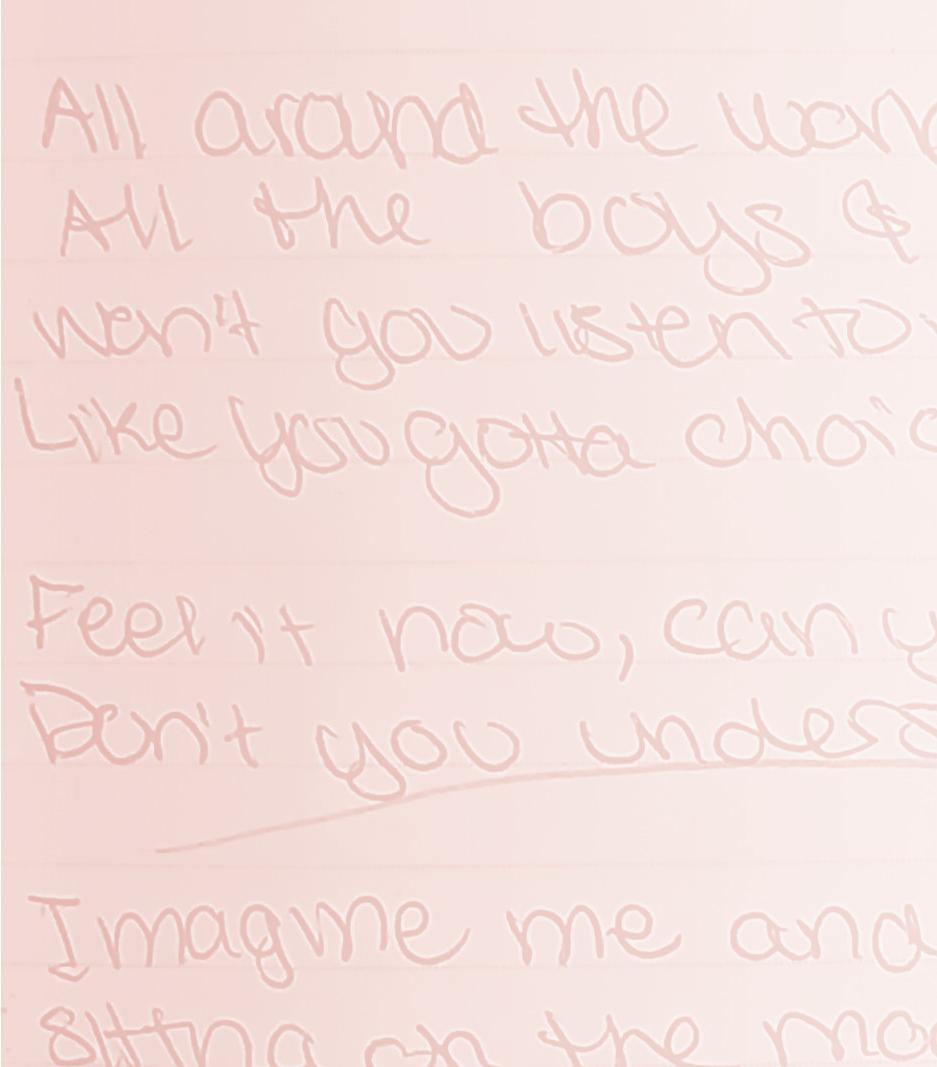 All around the
All the boys &
won't you listen to
Like you gotta
Feel it now, can
Don't you
Imagine me and
sitting on the